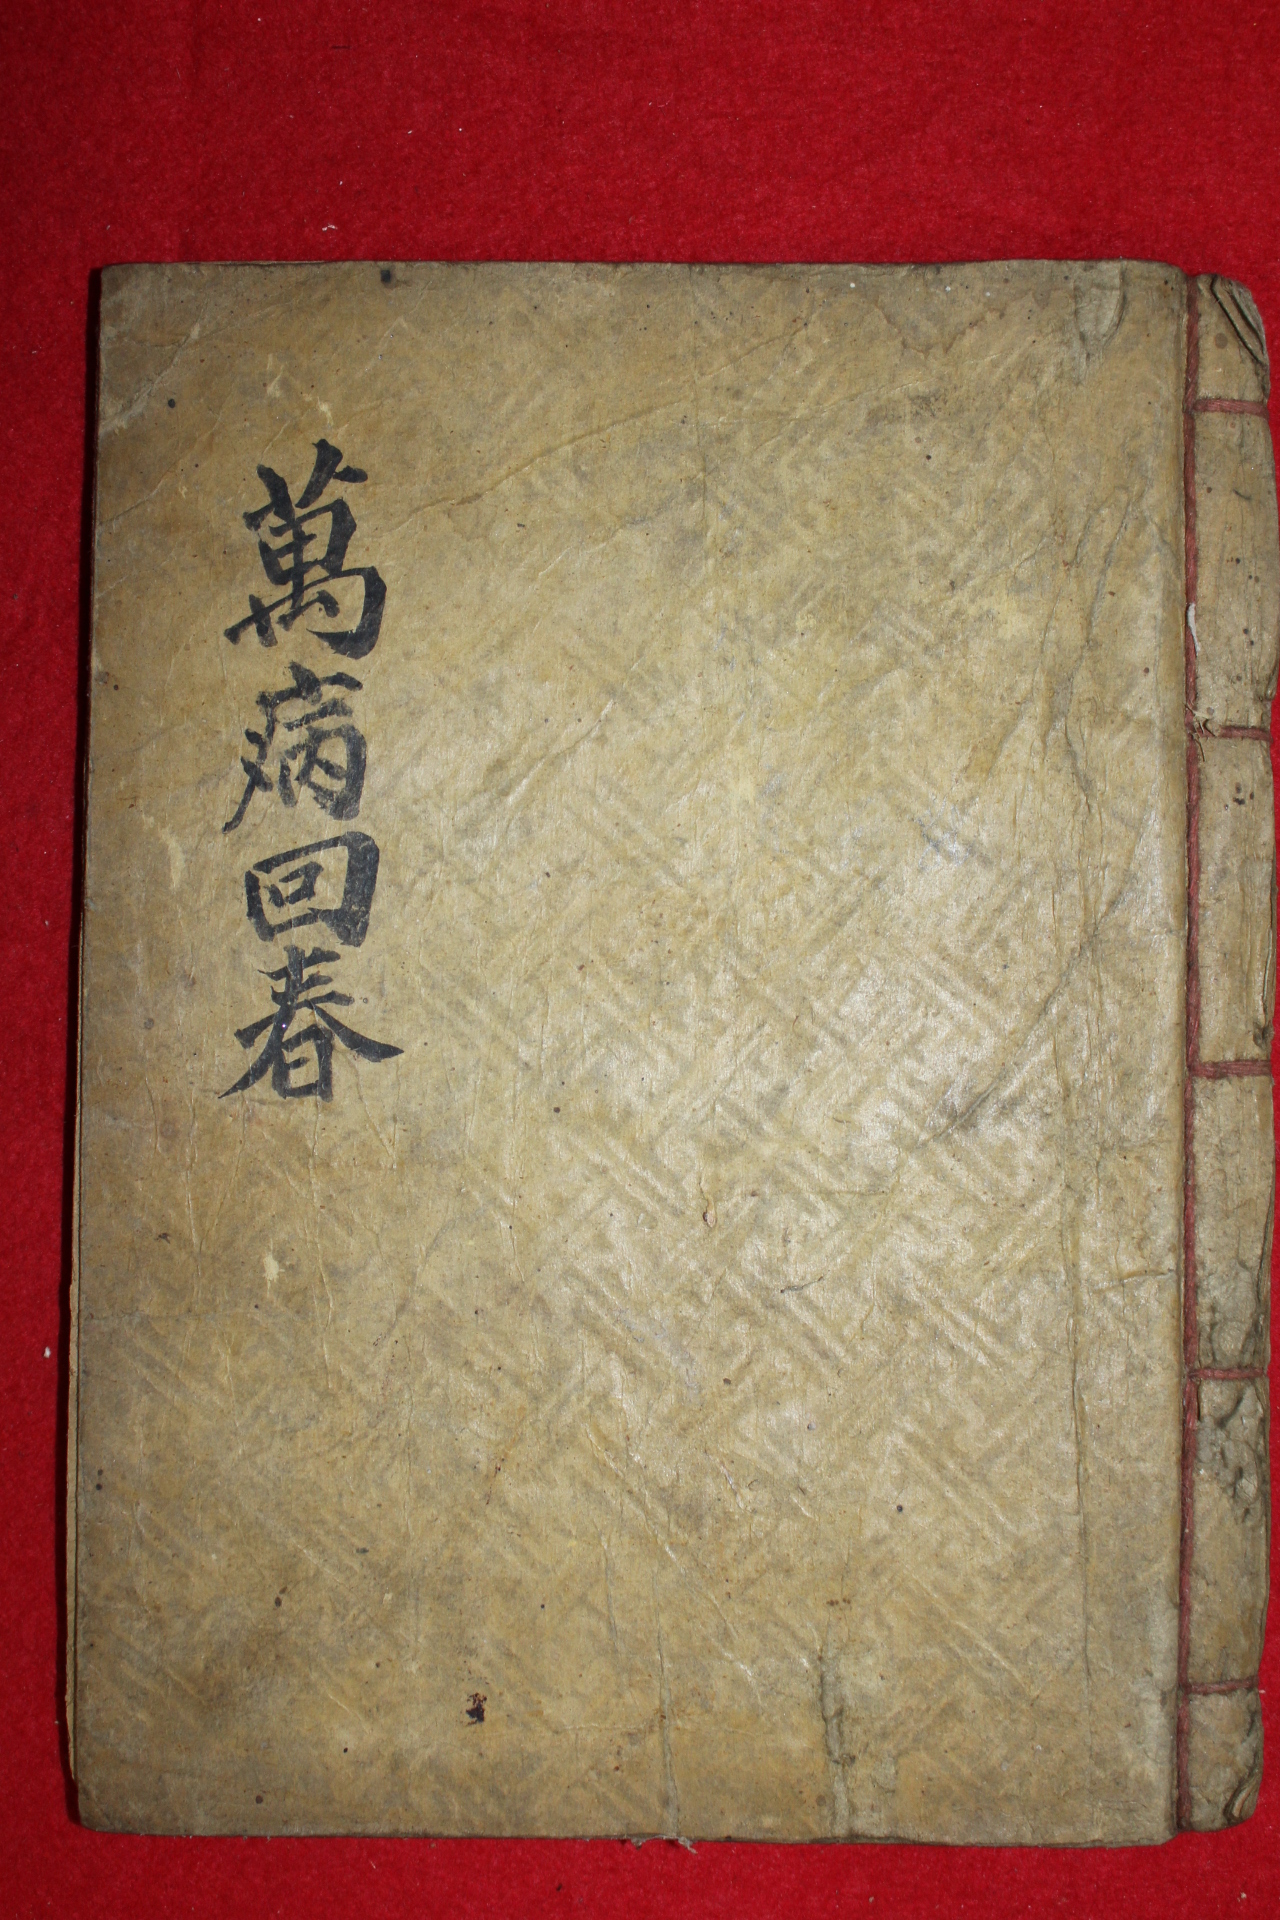 萬病回春